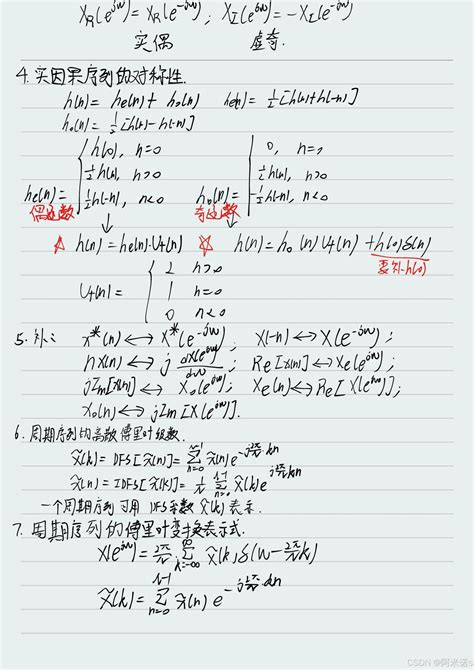 X_R(e^{jω})=X_R(e^{-jω}); X_I(e^{jω})=-X_I(e^{-jω})
实偶 虚奇.
4.实因果序列的对称性.
h(n)= he(n)+ ho(n) he(n)=½[h(n)+h(-n)]
ho(n)=½[h(n)-h(-n)]
he(n)= { h(0), n=0
½h(n), n>0
½h(-n), n<0
偶函数
ho(n)= { 0, n=0
½h(n), n>0
-½h(-n), n<0
奇函数
☆ h(n)=he(n)·U₊(n) ☆ h(n)=ho(n)U₊(n)+h(0)δ(n)
要补h(0)
U₊(n)= { 2 n>0
1 n=0
0 n<0
5.补: x*(n)↔X*(e^{-jω}); x(-n)↔X(e^{-jω});
nx(n)↔j dX(e^{jω})/dω; Re[x(n)]↔Xe(e^{jω});
jIm[x(n)]↔Xo(e^{jω}); Xe(n)↔Re[X(e^{jω})];
Xo(n)↔jIm[X(e^{jω})].
6.周期序列的离散傅里叶级数.
x̃(k)=DFS[x̃(n)]=∑_{n=0}^{N-1} x̃(n)e^{-j 2π/N kn}
x̃(n)=IDFS[x̃(k)]=1/N ∑ x̃(k)e^{j 2π/N kn}
一个周期序列可用DFS系数x̃(k)表示.
7.周期序列的傅里叶变换表示式.
X(e^{jω})=2π/N ∑_{k=-∞}^{∞} x̃(k)δ(ω-2π/N k)
x̃(k)=∑_{n=0}^{N-1} x̃(n)e^{-j 2π/N kn}
CSDN @阿米诺s